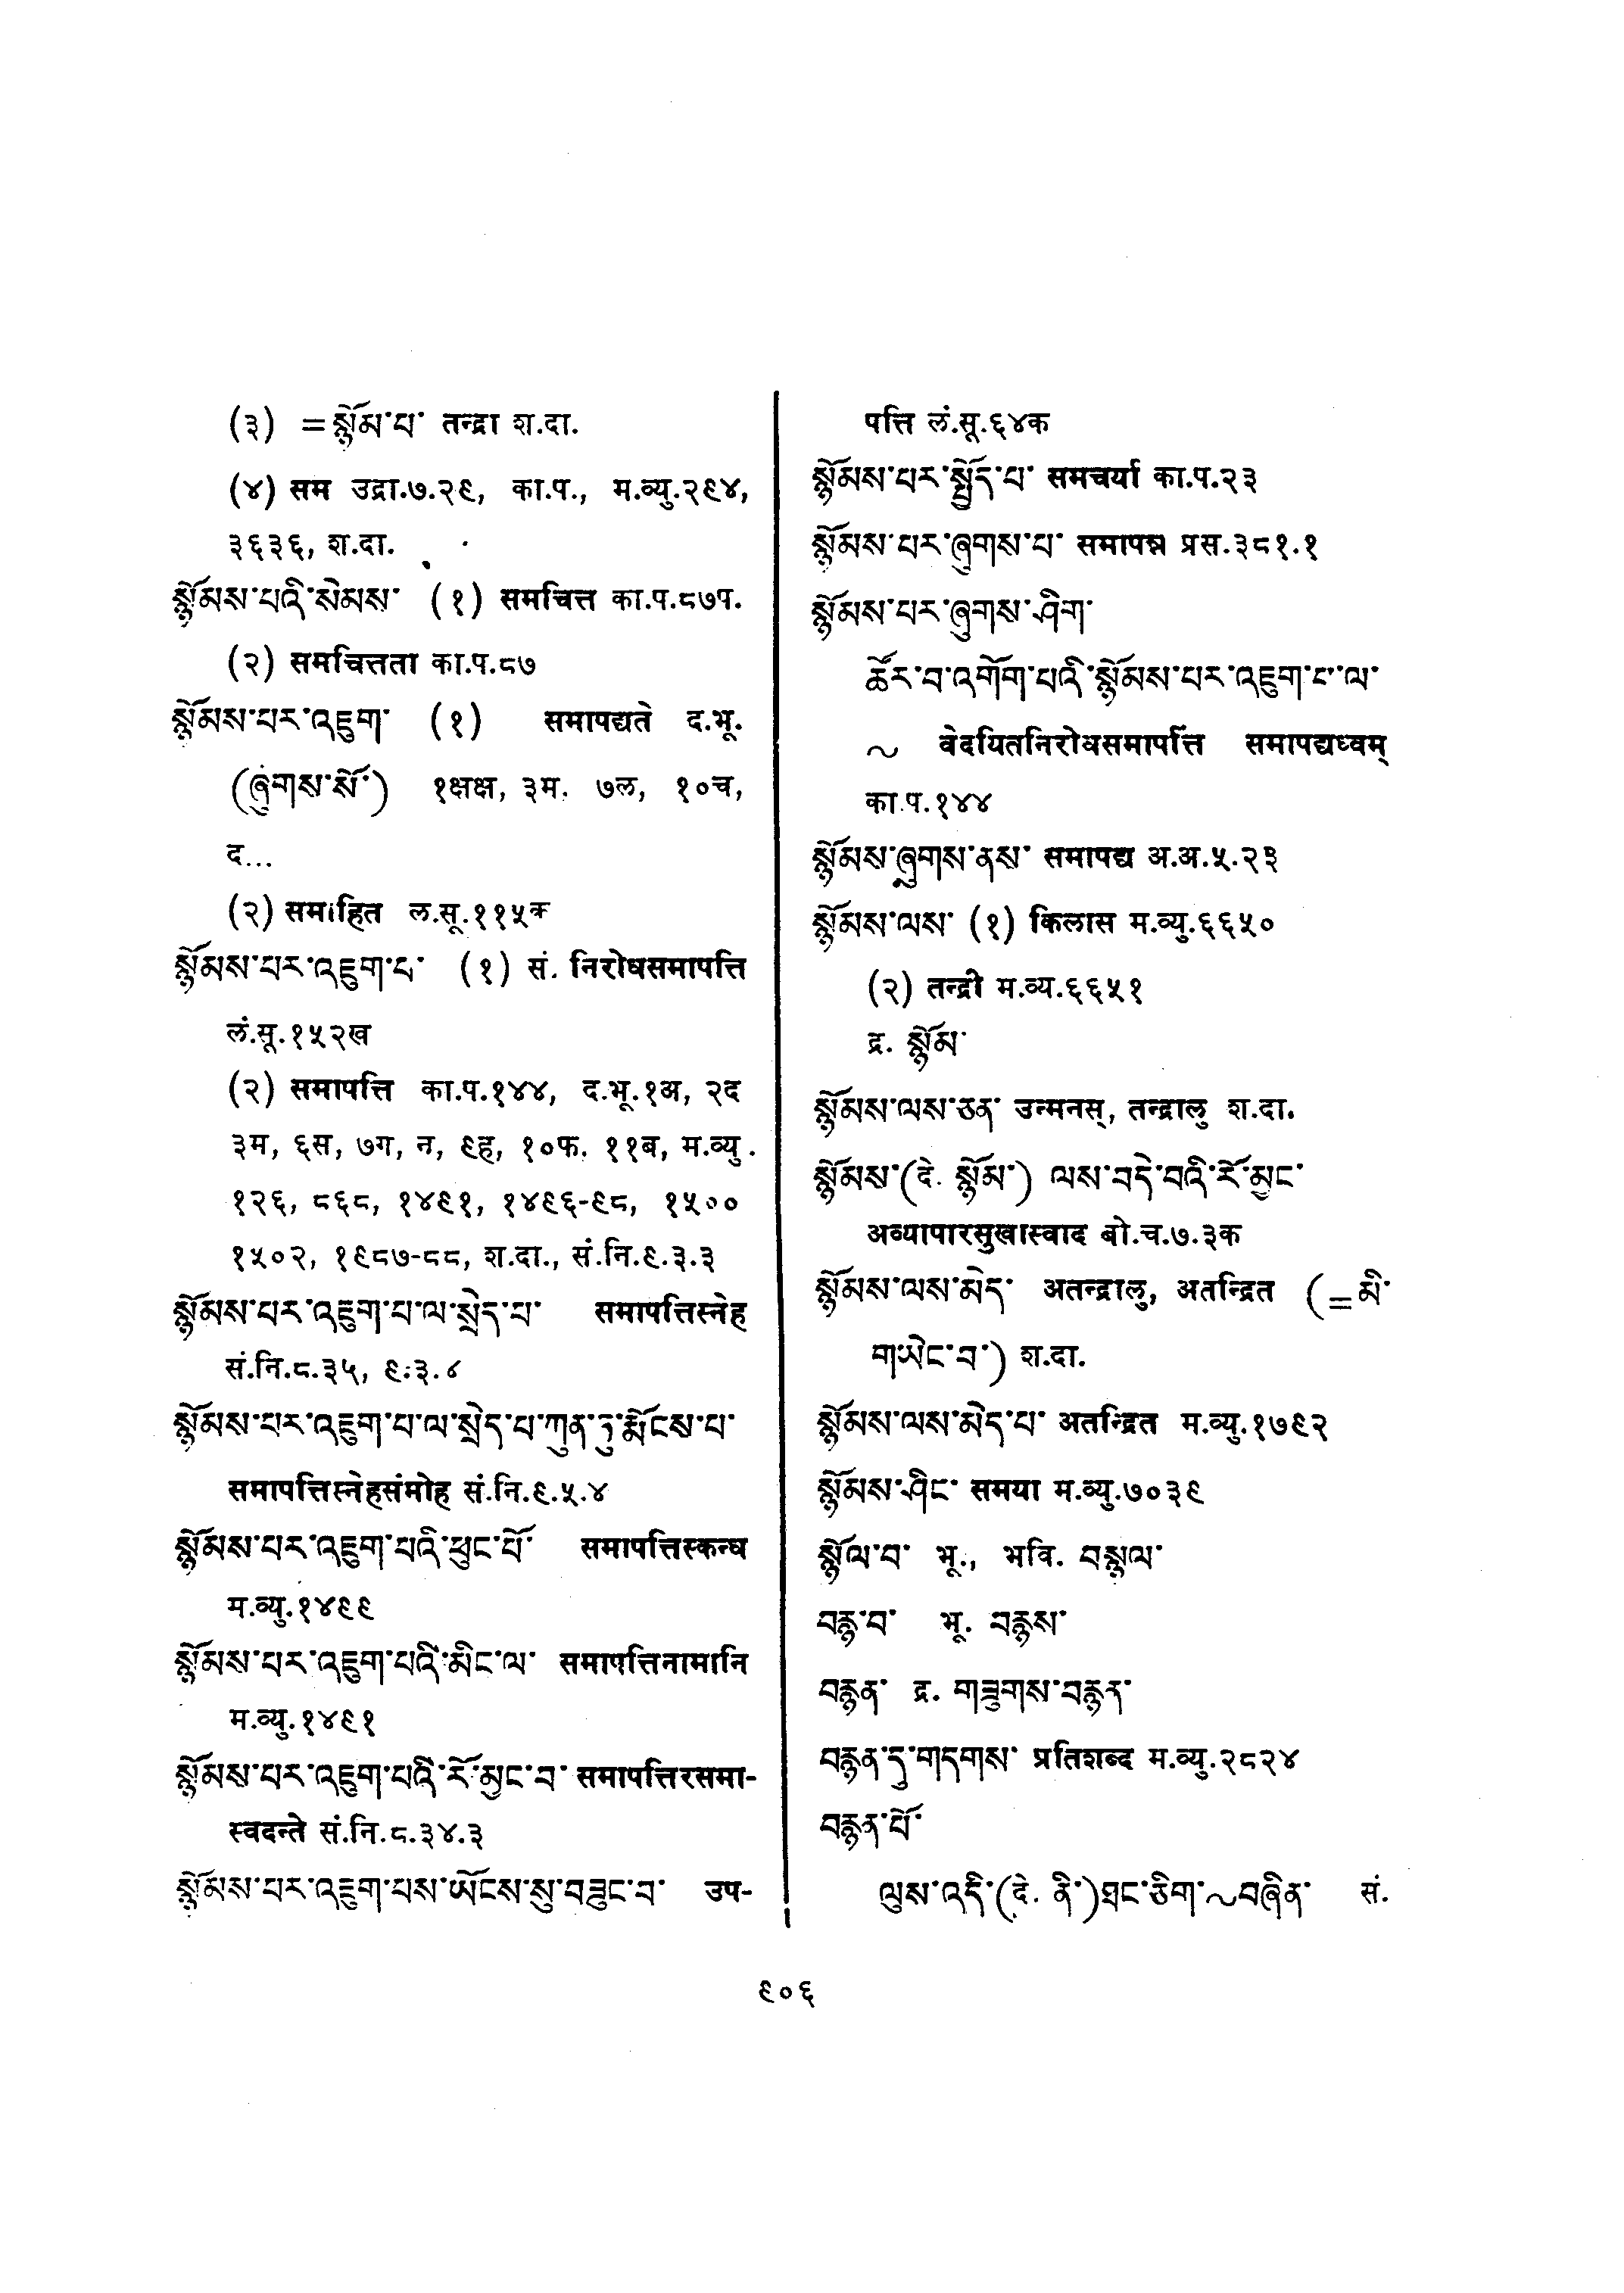 (३) =སྙོམ་པ་ तन्द्रा श.दा.
(४) सम उद्रा.७.२९, का.प., म.व्यु.२९४,
३६३६, श.दा.
སྙོམས་པའི་སེམས་ (१) समचित्त का.प.८७प.
(२) समचित्तता का.प.८७
སྙོམས་པར་འཇུག་ (१) समापद्यते द.भू.
(ཞུགས་སོ་) १क्षक्ष, ३म. ७ल, १०च,
द...
(२) समाहित ल.सू.११५क
སྙོམས་པར་འཇུག་པ་ (१) सं. निरोधसमापत्ति
लं.सू.१५२ख
(२) समापत्ति का.प.१४४, द.भू.१अ, २द
३म, ६स, ७ग, न, ९ह, १०फ. ११ब, म.व्यु.
१२६, ८६८, १४९१, १४९६-९८, १५००
१५०२, १९८७-८८, श.दा., सं.नि.९.३.३
སྙོམས་པར་འཇུག་པ་ལ་སྲེད་པ་ समापत्तिस्नेह
सं.नि.८.३५, ९.३.४
སྙོམས་པར་འཇུག་པ་ལ་སྲེད་པ་ཀུན་ཏུ་རྨོངས་པ་
समापत्तिस्नेहसंमोह सं.नि.९.५.४
སྙོམས་པར་འཇུག་པའི་ཕུང་པོ་ समापत्तिस्कन्ध
म.व्यु.१४९९
སྙོམས་པར་འཇུག་པའི་མིང་ལ་ समापत्तिनामानि
म.व्यु.१४९१
སྙོམས་པར་འཇུག་པའི་རོ་མྱང་བ་ समापत्तिरसमा-
स्वदन्ते सं.नि.८.३४.३
སྙོམས་པར་འཇུག་པས་ཡོངས་སུ་བཟུང་བ་ उप-
पत्ति लं.सू.६४क
སྙོམས་པར་སྤྱོད་པ་ समचर्या का.प.२३
སྙོམས་པར་ཞུགས་པ་ समापन्न प्रस.३८१.१
སྙོམས་པར་ཞུགས་ཤིག་
ཚོར་བ་འགོག་པའི་སྙོམས་པར་འཇུག་པ་ལ་
~ वेदयितनिरोधसमापत्तिं समापद्यध्वम्
का.प.१४४
སྙོམས་ཞུགས་ནས་ समापद्य अ.अ.५.२३
སྙོམས་ལས་ (१) किलास म.व्यु.६६५०
(२) तन्द्री म.व्य.६६५१
द्र. སྙོམ་
སྙོམས་ལས་ཅན་ उन्मनस्, तन्द्रालु श.दा.
སྙོམས་(དེ. སྙོམ་) ལས་བདེ་བའི་རོ་མྱང་
अव्यापारसुखास्वाद बो.च.७.३क
སྙོམས་ལས་མེད་ अतन्द्रालु, अतन्द्रित (=མི་
གཡེང་བ་) श.दा.
སྙོམས་ལས་མེད་པ་ अतन्द्रित म.व्यु.१७९२
སྙོམས་ཤིང་ समया म.व्यु.७०३९
སྙོལ་བ་ भू., भवि. བསྙལ་
བརྙ་བ་ भू. བརྙས་
བརྙན་ द्र. གཟུགས་བརྙན་
བརྙན་དུ་གདགས་ प्रतिशब्द म.व्यु.२८२४
བརྙན་པོ་
ལུས་འདི་(དེ. ནི་)ཐང་ཅིག་~བཞིན་ सं.
९०६